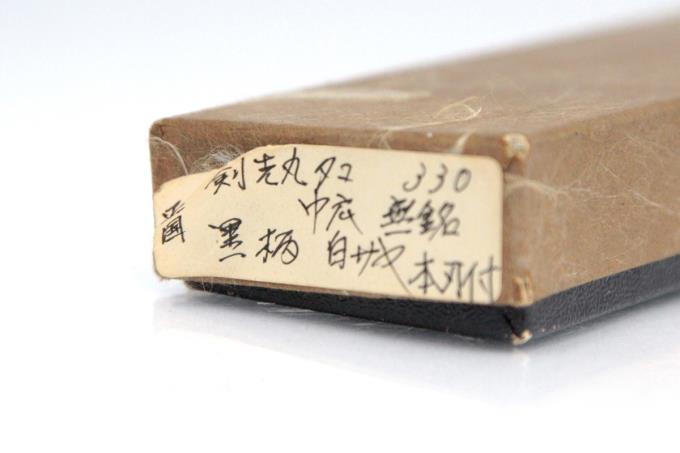 剣先丸タコ 330
中広 無銘
黒柄 白サヤ 本刃付